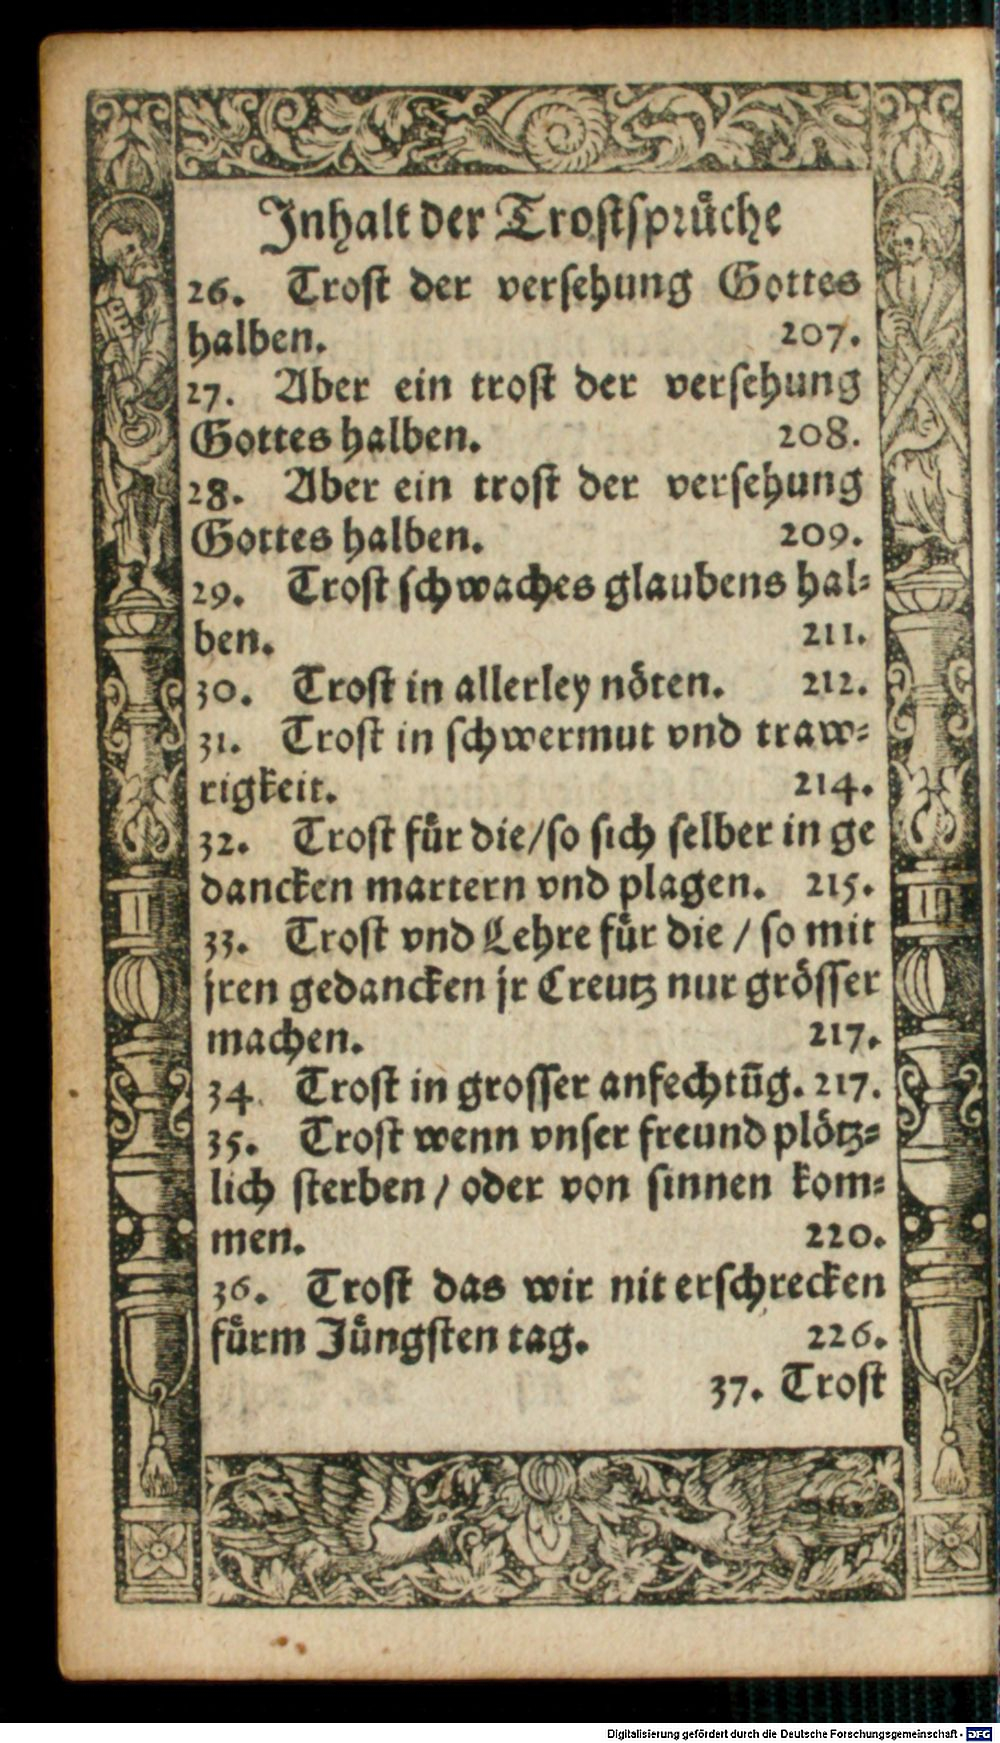 Inhalt der Trostsprüche
26. Trost der versehung Gottes
halben. 207.
27. Aber ein trost der versehung
Gottes halben. 208.
28. Aber ein trost der versehung
Gottes halben. 209.
29. Trost schwaches glaubens hal-
ben. 211.
30. Trost in allerley nöten. 212.
31. Trost in schwermut vnd traw-
rigkeit. 214.
32. Trost für die/so sich selber in ge
dancken martern vnd plagen. 215.
33. Trost vnd Lehre für die / so mit
jren gedancken jr Creutz nur grösser
machen. 217.
34. Trost in grosser anfechtūg. 217.
35. Trost wenn vnser freund plötz-
lich sterben / oder von sinnen kom-
men. 220.
36. Trost das wir nit erschrecken
fürm Jüngsten tag. 226.
37. Trost
Digitalisierung gefördert durch die Deutsche Forschungsgemeinschaft - DFG